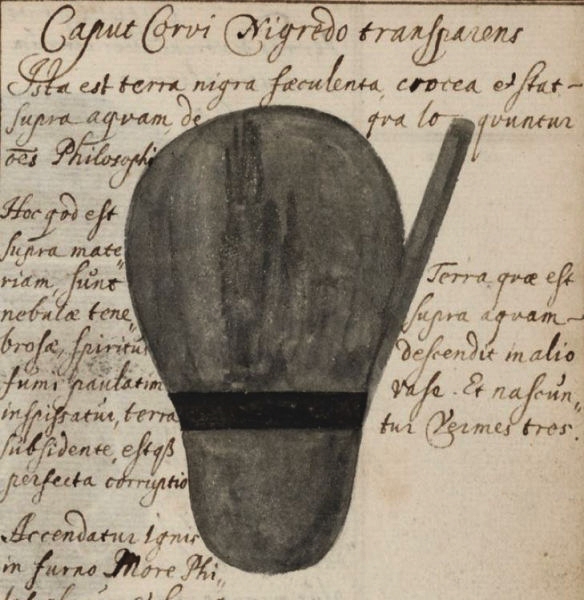 Caput Corvi Nigredo transparens
Ista est terra nigra fæculenta, crocea et stat-
supra aqvam, de qva loqvuntur
oēs Philosophi
Hoc qod est
supra mate"
riam, sunt
nebulæ tene"
brosæ, spiritus
fumi paulatim
inspissatur, terra
subsidente, estqß
perfecta corruptio
Accendatur ignis
in furno More Phi"
Terra quæ est
supra aqvam
descendit in alio
vase. Et nascun"
tur Vermes tres.